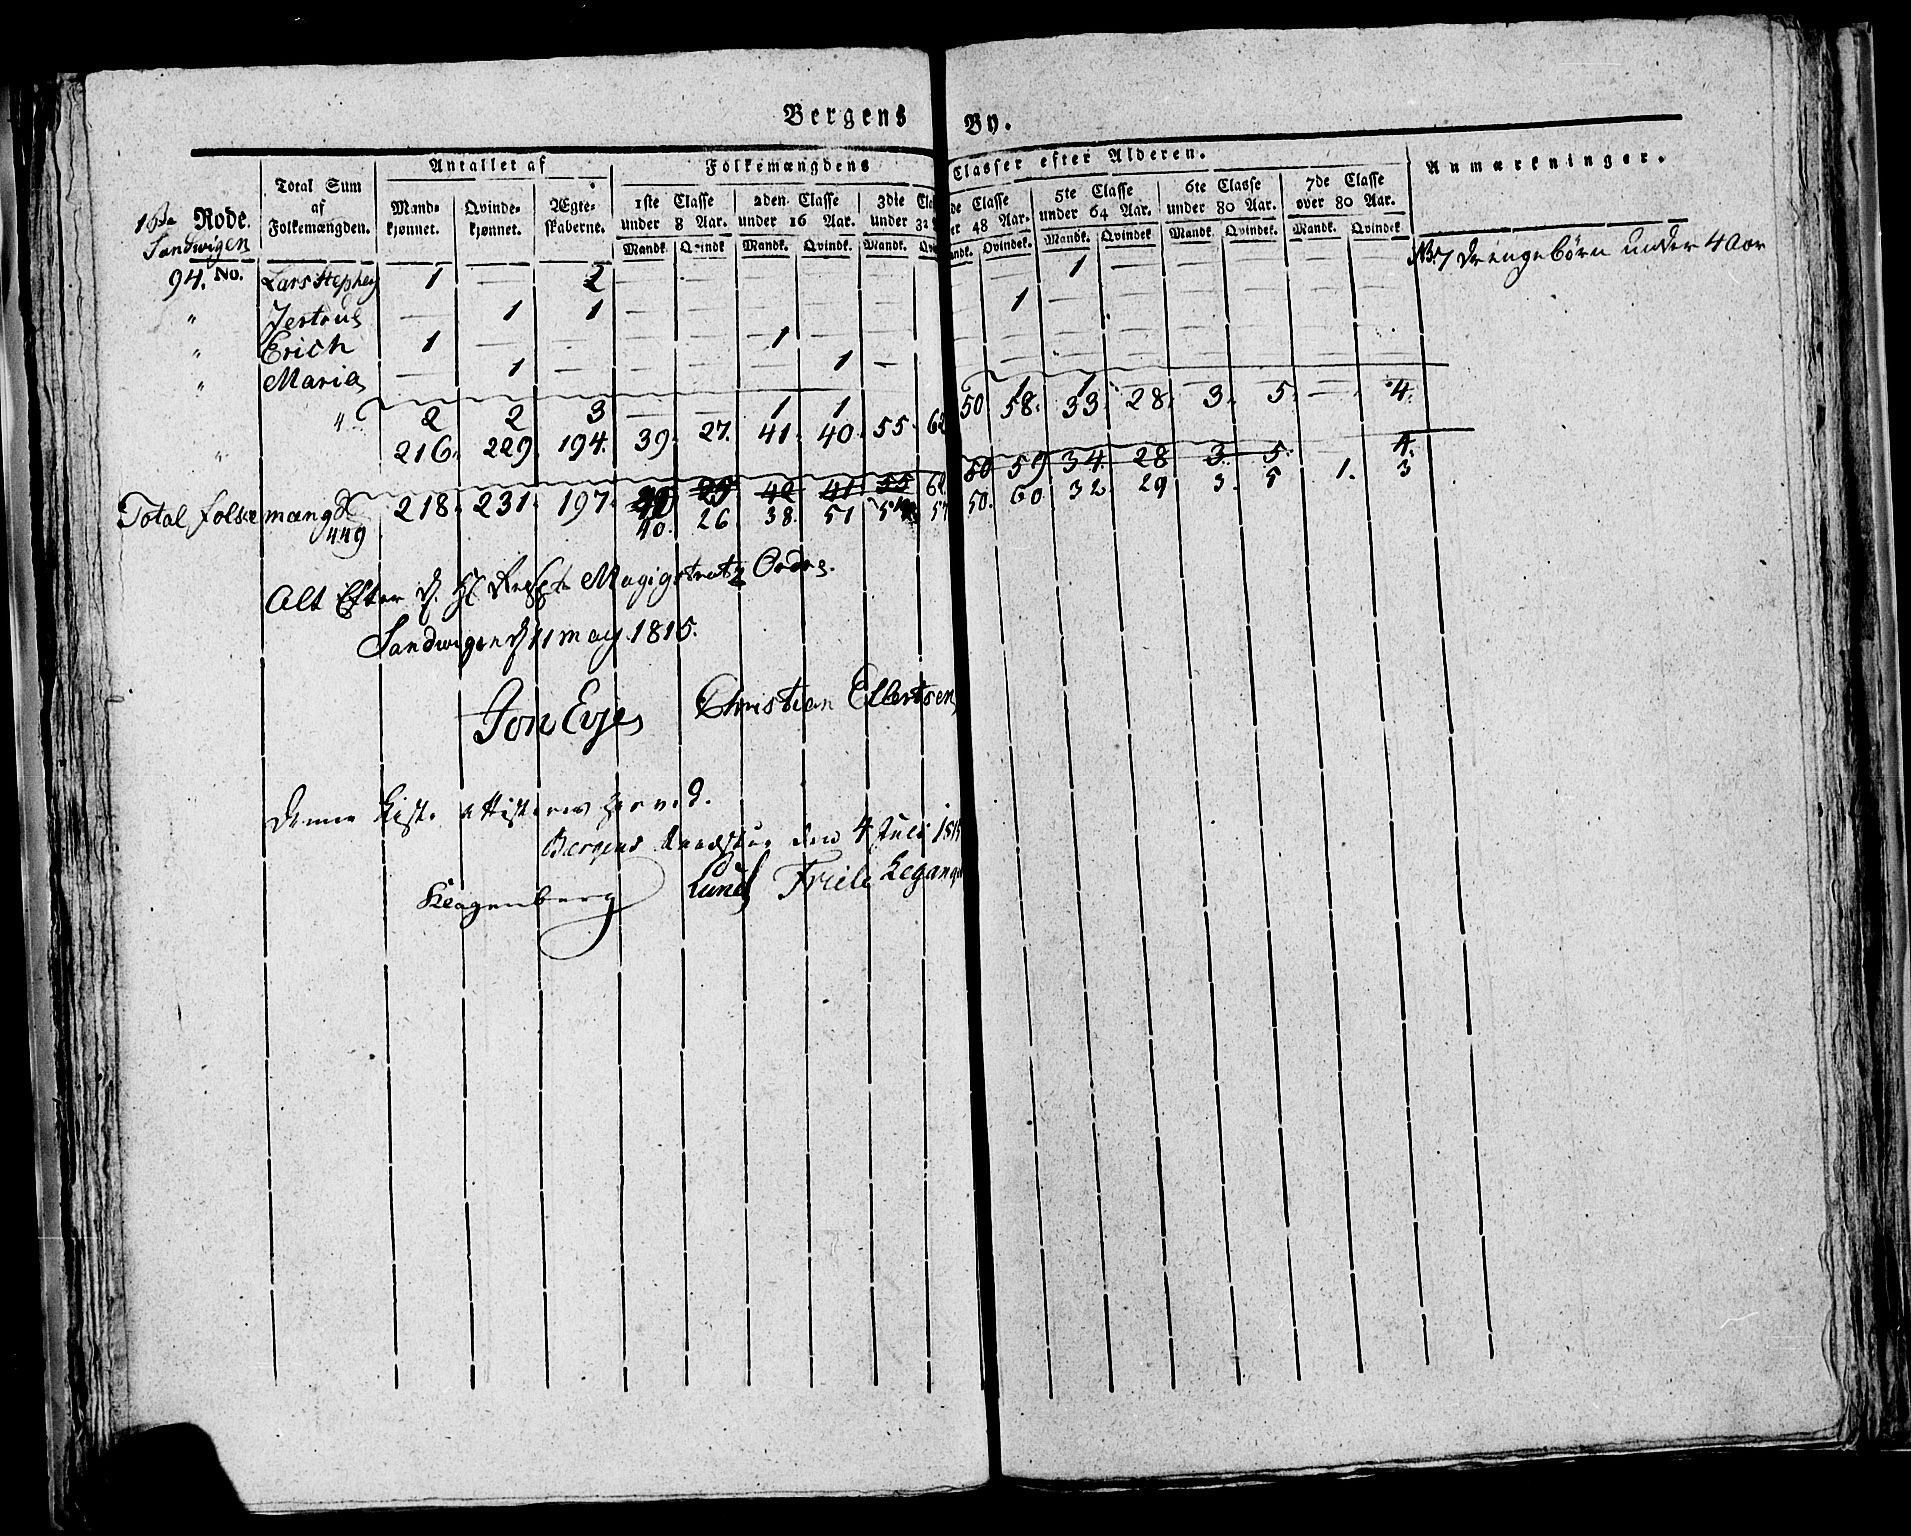 Bergens By.
Antallet af Folkemængdens Classer efter Alderen. Anmærkninger.
Rode. Total Sum af Folkemængden. Mandkjønnet. Qvindekjønnet. Ægteskaberne. 1ste Classe under 8 Aar. 2den Classe under 16 Aar. 3die Cla under 32 de Classe er 48 Aar. 5te Classe under 64 Aar. 6te Classe under 80 Aar. 7de Classe over 80 Aar.
Sandwigen
Mandk. Qvindk Mandk. Qvindk. Mandk. Qvi andk. Qvindek. Mandk. Qvindek Mandk. Qvindek. Mandk. Qvindek
94. No. Lars 1 — 2 — — — — — 1 — — — — — 7 drengebørn under 4 Aar
" Jertrud — 1 1 — — — — — 1 — — — — — —
" Erich 1 — — — — 1 — — — — — — —
" Maria — 1 — — — — 1 — — — — — —
" 2 2 3 — — 1 1 1 1 — — — — —
" 216. 229. 194. 39. 27. 41. 40. 55. 62 50 58. 33 28. 3. 5. — 4.
Total folkemængd 218. 231. 197. 42 41 55 62 50 59 34. 28 3. 5. 4.
449 40. 26 38. 51 57 50. 60 32 29 3. 5 1. 3
Alt Efter Magistratz Ordre.
Sandwigen d 11 may 1815.
Jon Evje Christian Ellertsen
Denne Liste attisteres herved.
Bergens Raadstue den 4 Juli 1815
Klagenberg Lund Friele Legang